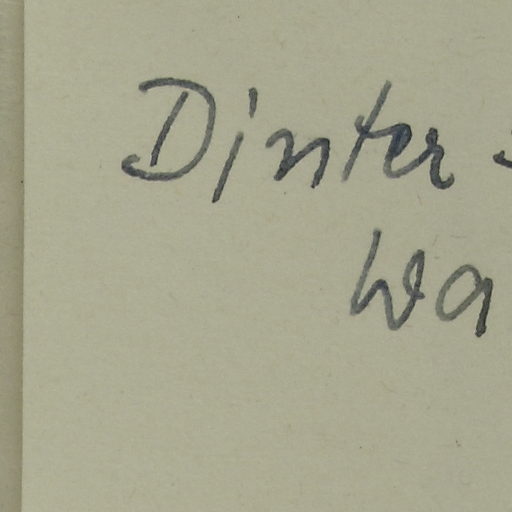 Dinter
Wa